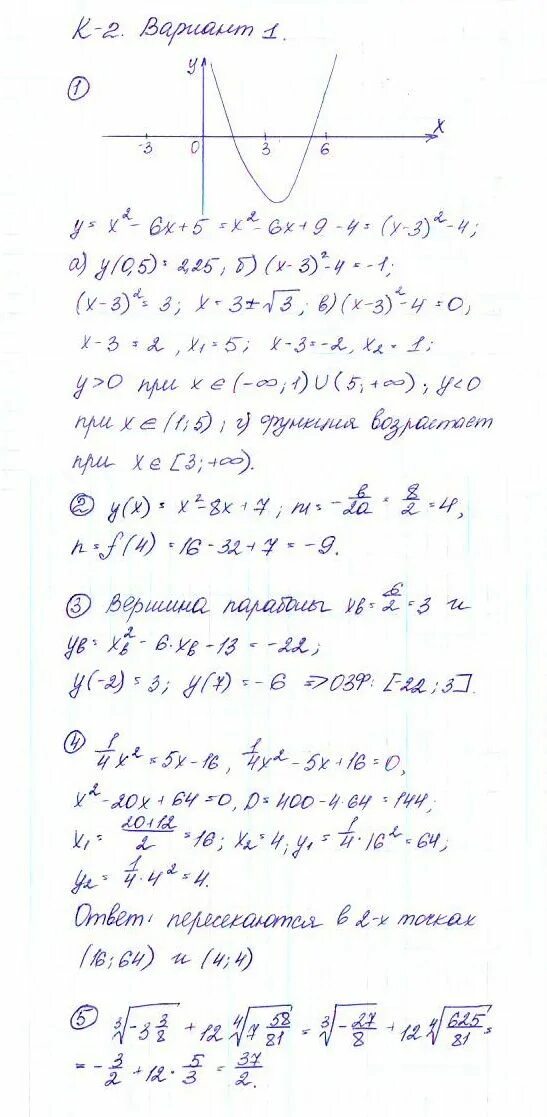 К-2. Вариант 1.
①
y
x
-3 0 3 6
y = x² - 6x + 5 = x² - 6x + 9 - 4 = (x-3)² - 4;
а) y(0,5) = 2,25, б) (x-3)² - 4 = -1;
(x-3)² = 3; x = 3 ± √3; в) (x-3)² - 4 = 0,
x-3 = 2, x₁ = 5; x-3 = -2, x₂ = 1;
y > 0 при x ∈ (-∞; 1) ∪ (5; +∞); y < 0
при x ∈ (1; 5); г) функция возрастает
при x ∈ [3; +∞).
② y(x) = x² - 8x + 7; m = -b/2a = 8/2 = 4,
n = f(4) = 16 - 32 + 7 = -9.
③ Вершина параболы xв = 6/2 = 3 и
yв = xв² - 6·xв - 13 = -22;
y(-2) = 3; y(7) = -6 => ОЗФ: [-22; 3].
④ 1/4 x² = 5x - 16, 1/4 x² - 5x + 16 = 0,
x² - 20x + 64 = 0, D = 400 - 4·64 = 144;
x₁ = (20+12)/2 = 16; x₂ = 4; y₁ = 1/4 · 16² = 64;
y₂ = 1/4 · 4² = 4.
Ответ: пересекаются в 2-х точках
(16; 64) и (4; 4)
⑤ ∛(-3 3/8) + 12 ∜(7 58/81) = ∛(-27/8) + 12 ∜(625/81) =
= -3/2 + 12 · 5/3 = 37/2.